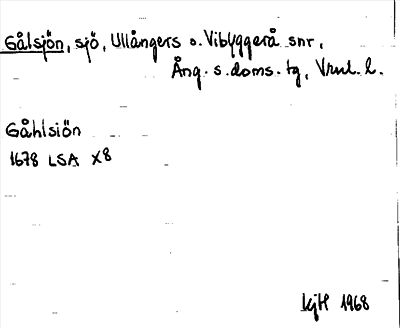 Gålsjön, sjö, Ullångers o. Vibyggerå snr,
Ång. s. doms. tg, Vrnl. l.
Gåhlsiön
1678 LSA X8
KjH 1968